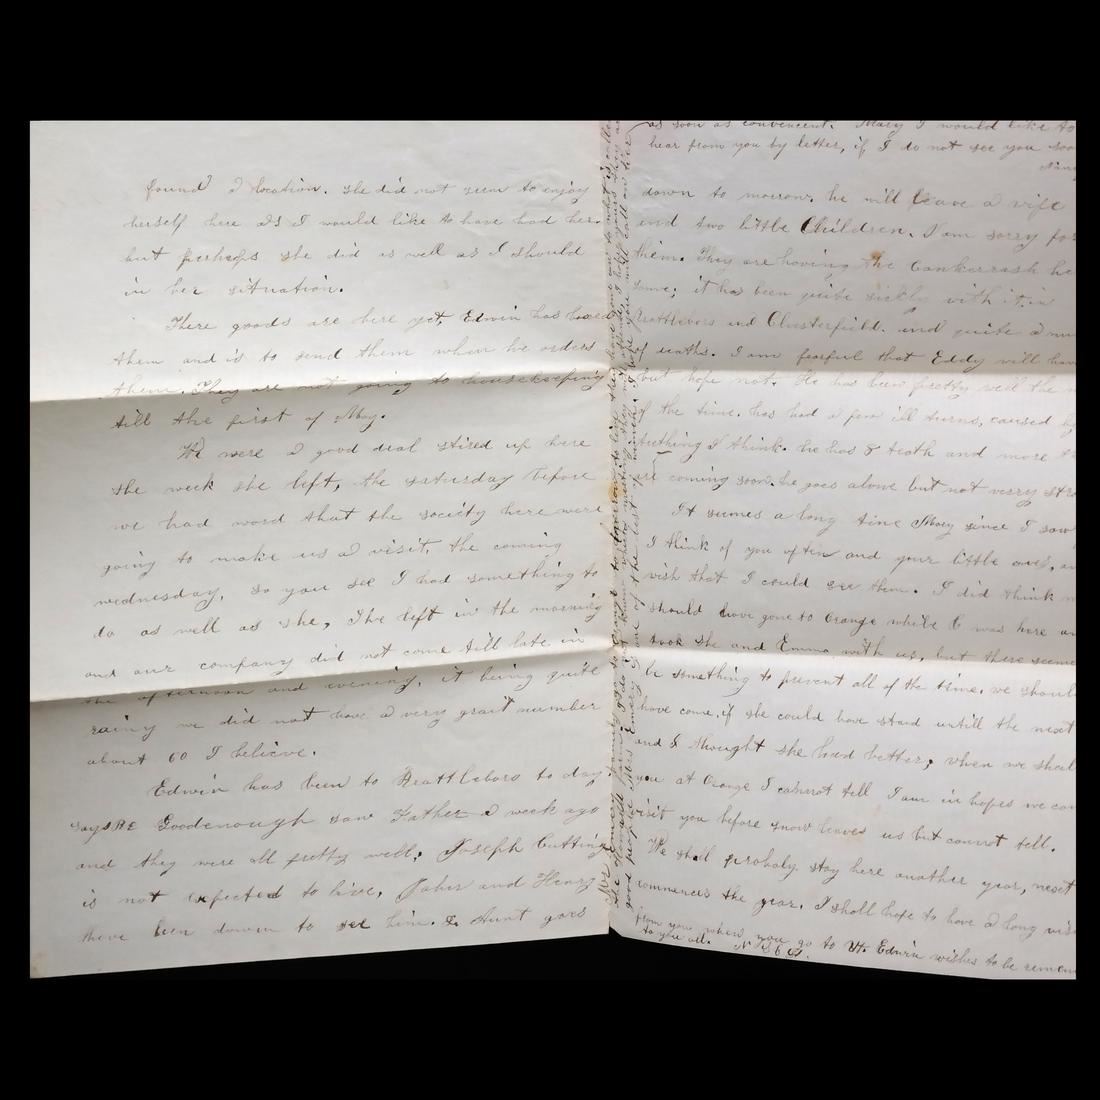 found a location. She did not seem to enjoy
herself here as I would like to have had her.
but perhaps she did as well as I should
in her situation.
There goods are here yet, Edwin has boxed
them and is to send them when he orders
them. They are not going to housekeeping
till the first of May.
We were a good deal stired up here
the week she left, the saturday before
we had word that the society here were
going to make us a visit, the coming
wednesday, so you see I had something to
do as well as she, She left in the morning
and our company did not come till late in
the afternoon and evening, it being quite
rainy we did not have a very grait number
about 60 I believe.
Edwin has been to Brattleboro to day
says RE Goodenough saw Father a week ago
and they were all pretty well, Joseph Cutting
is not expected to live, and Henry
there been down to see him. & Aunt goes
as soon as convenient. Mary I would like to
hear from you by letter, if I do not see you soo
down to morrow. he will leave a wife
and two little Children. I am sorry for
them. They are having the Cankerrash he
some; it has been quite sickly with it in
Brattleboro and Chesterfield. and quite a num
of deaths. I am fearful that Eddy will have
but hope not. He has been pretty well the
of the time. has had a few ill turns, caused by
teething I think. he has 8 teath and more
coming soon. he goes alone but not verry stro
It semes a long time Mary since I saw
I think of you often and your little ones, an
wish that I could see them. I did think
should have gone to Orange while C was here an
took she and Emma with us, but there seeme
be something to prevent all of the time. we should
have come, if she could have staid untill the next
and I thought she had better, when we shall
you at Orange I cannot tell I am in hopes we can
visit you before snow leaves us but cannot tell.
We shall probaly stay here another year, next
commences the year. I shall hope to have a long visi
from you when you go to Vt. Edwin wishes to be remem
to you all.
Mrs Emery family go to Orange to morrow to live they have gone on to what is called
the farm, I do not know whether meeting they will attend I hope yours they are
good people Mrs Emery is one of the best of women. I hope you will call on her